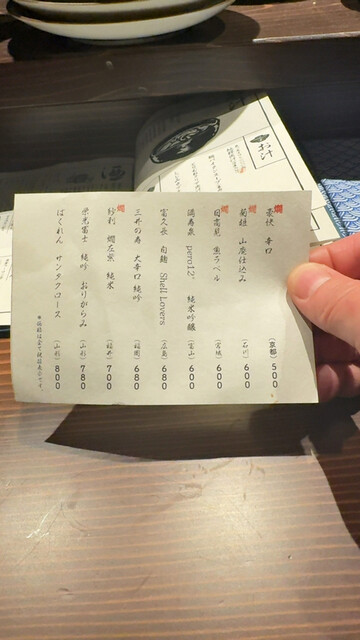 燗
辛口 (京都) 500
燗
菊姫 山廃仕込み (石川) 600
燗
日高見 魚ラベル (宮城) 600
満寿泉 pero12° 純米吟醸 (富山) 600
富久長 白麹 Shell Lovers (広島) 680
三井の寿 大辛口 純吟 (福岡) 680
燗
純米 (福井) 700
栄光冨士 純吟 おりがらみ (山形) 780
ばくれん サンタクロース (山形) 800
お汁
酒